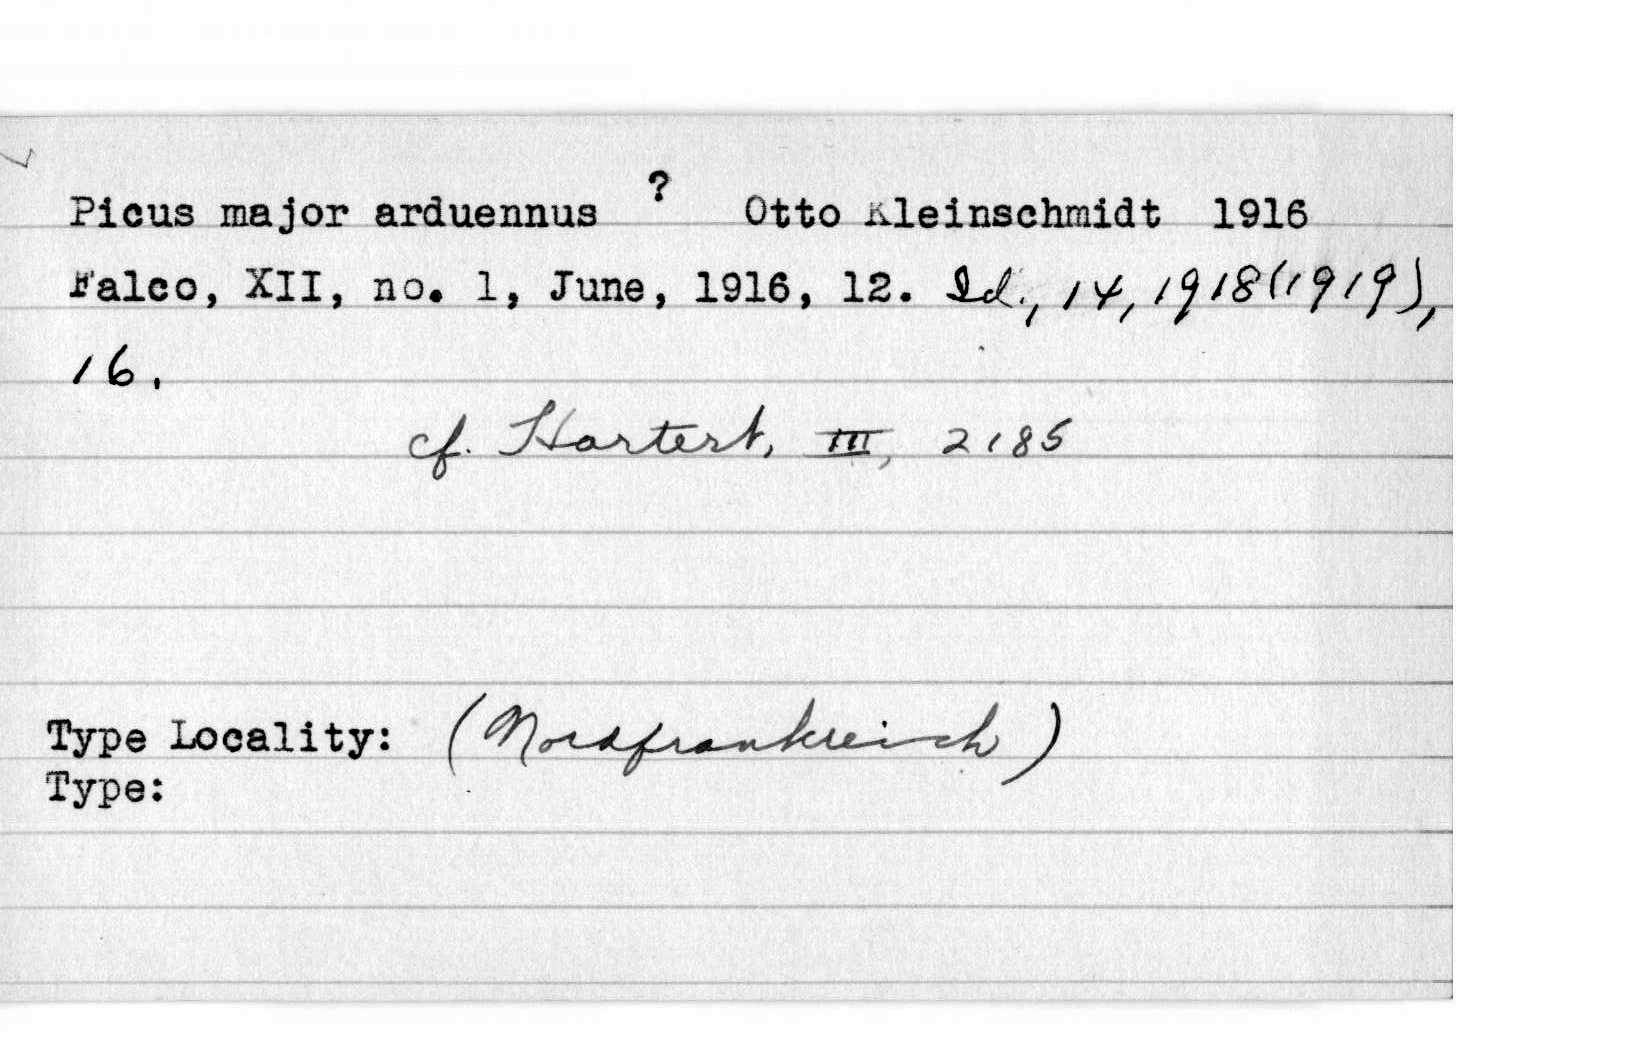 Picus major arduennus ? Otto Kleinschmidt 1916
Falco, XII, no. 1, June, 1916, 12. Id., 14, 1918(1919),
16.
cf. Hartert, III, 2185
Type Locality: (Nordfrankreich)
Type: